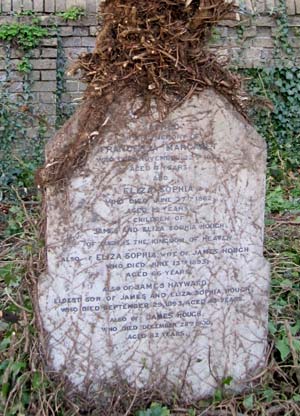 FRANCES
WHO DIED NOVEMBER
AND
ELIZA SOPHIA
WHO DIED JUNE 27TH 1862
CHILDREN OF
JAMES AND ELIZA SOPHIA HOUGH
OF SUCH IS THE KINGDOM OF HEAVEN
ALSO OF ELIZA SOPHIA, WIFE OF JAMES HOUGH
WHO DIED JUNE 13TH 1893,
AGED 66 YEARS.
ALSO OF JAMES HAYWARD,
ELDEST SON OF JAMES AND ELIZA SOPHIA HOUGH
WHO DIED SEPTEMBER 29, 1893, AGED YEARS.
ALSO OF JAMES HOUGH,
WHO DIED DECEMBER
AGED 82 YEARS.